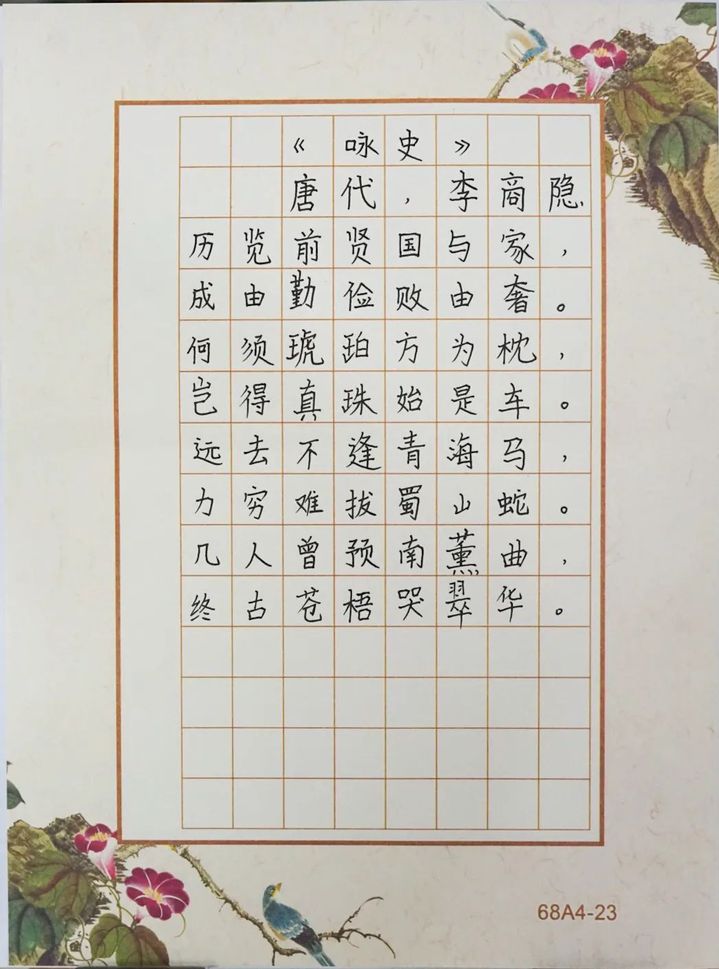 《咏史》
唐代，李商隐
历览前贤国与家，
成由勤俭败由奢。
何须琥珀方为枕，
岂得真珠始是车。
远去不逢青海马，
力穷难拔蜀山蛇。
几人曾预南薰曲，
终古苍梧哭翠华。
68A4-23